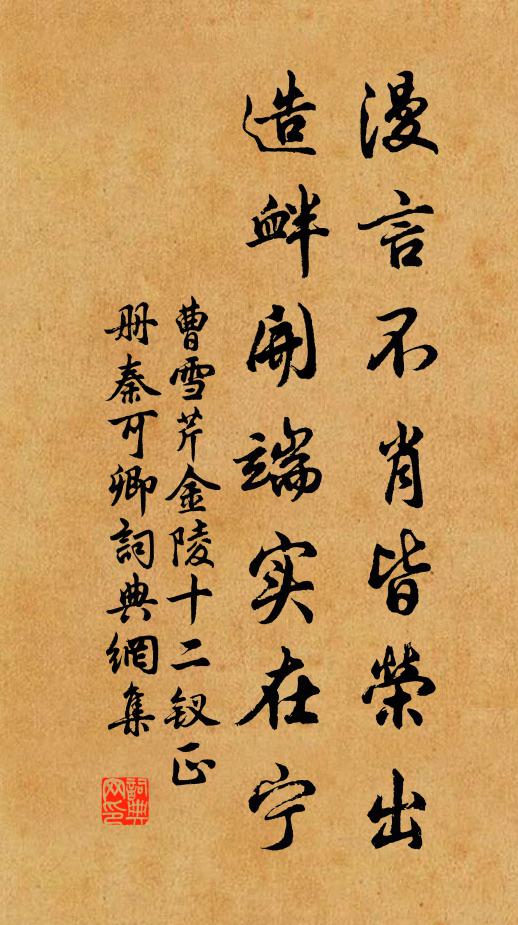 漫言不肖皆榮出
造衅開端实在宁
曹雪芹金陵十二钗正
册秦可卿詞典網集
詞典
网印